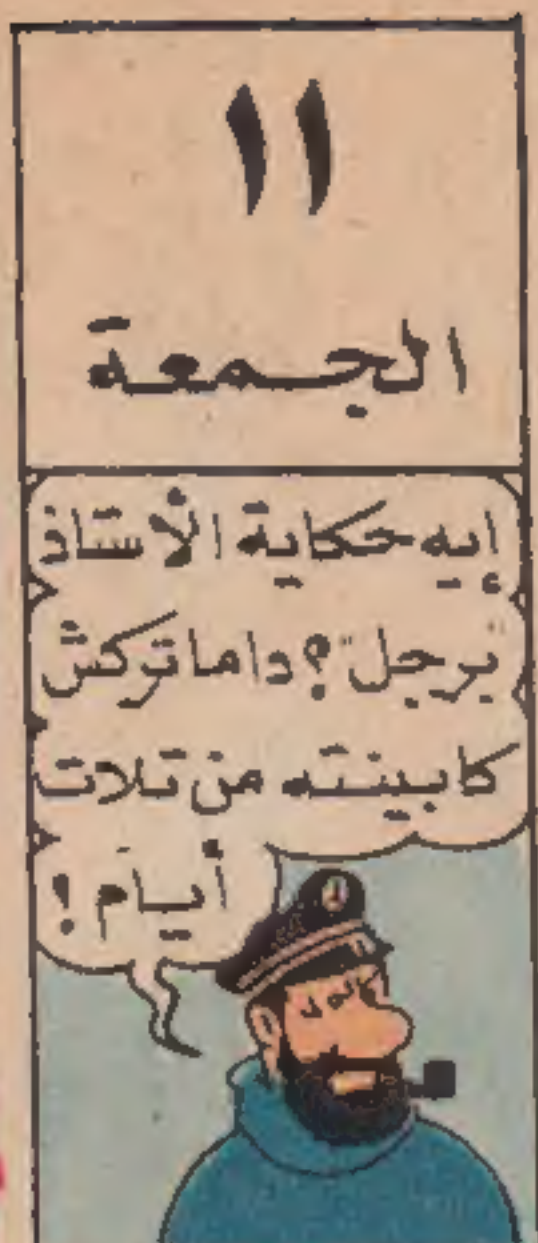 ١١
الجمعة
إيه حكاية الأستاذ
"برجل"؟ دا ما تركش
كابينته من تلات
أيام !